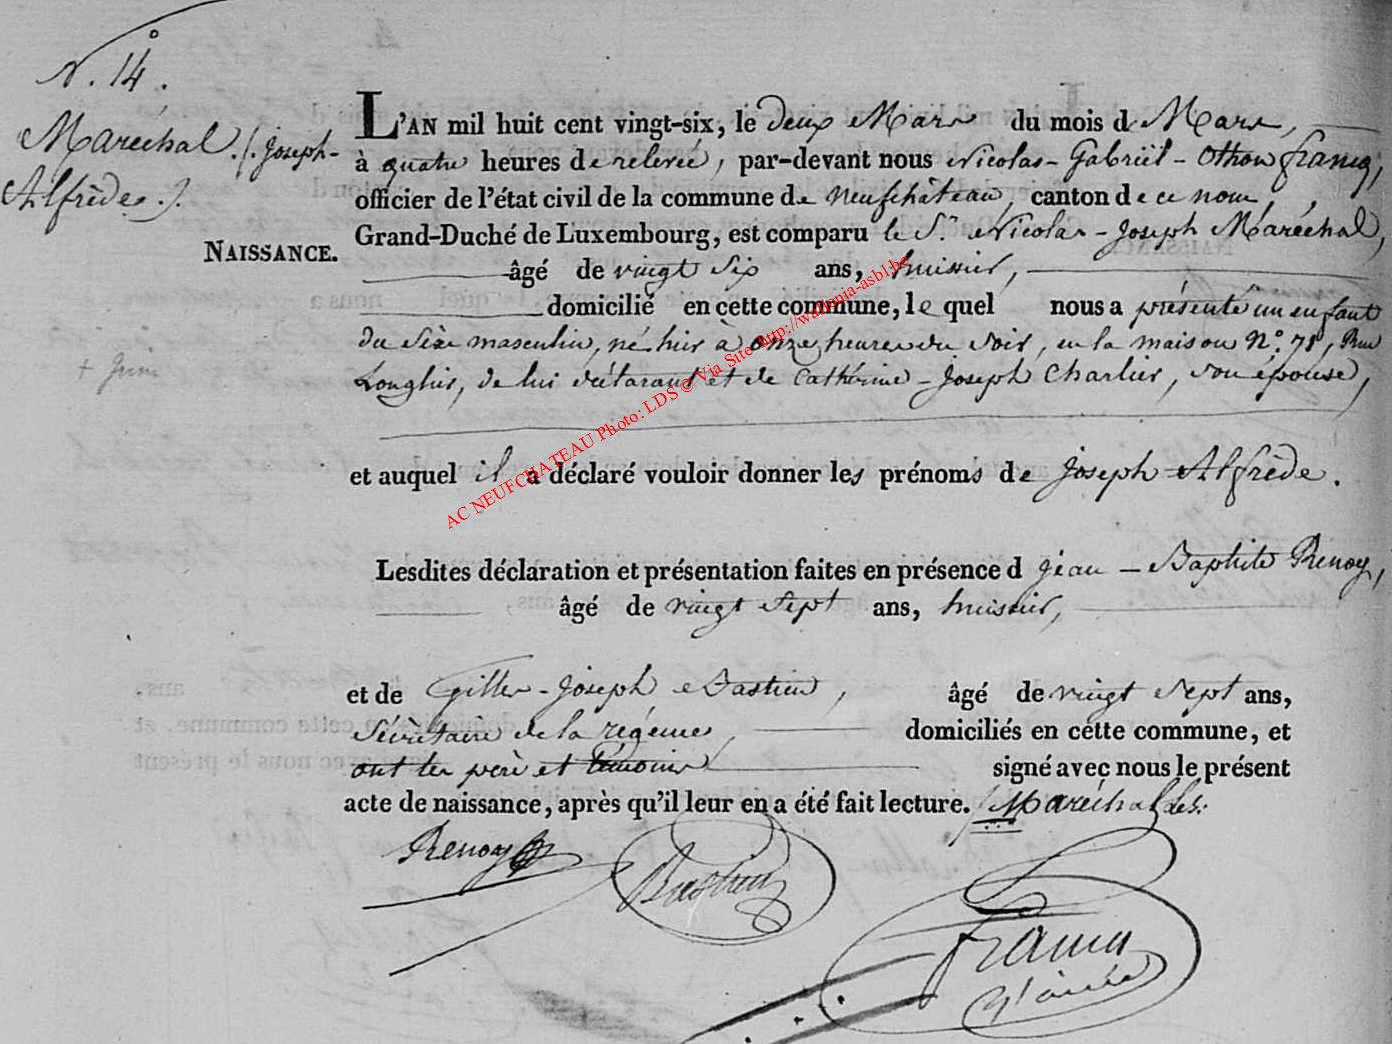 N.° 14.
Maréchal (Joseph-
Alfrède).
NAISSANCE.
L'AN mil huit cent vingt-six, le deux Mars du mois de Mars,
à quatre heures de relevée, par-devant nous Nicolas-Gabriël-Othon Francq,
officier de l'état civil de la commune de Neufchâteau, canton de ce nom,
Grand-Duché de Luxembourg, est comparu le Sr. Nicolas-Joseph Maréchal,
âgé de vingt six ans, huissier,
domicilié en cette commune, lequel nous a présenté un enfant
du sèxe masculin, né hier à onze heures du soir, en la maison N.° 78, Rue
Longlier, de lui déclarant et de Cathérine-Joseph Charlier, son épouse,
et auquel il a déclaré vouloir donner les prénoms de Joseph-Alfrède.
Lesdites déclaration et présentation faites en présence d Jean-Baptiste Renoy,
âgé de vingt sept ans, huissier,
et de Gilles-Joseph Bastien, âgé de vingt sept ans,
Sécrétaire de la régence, domiciliés en cette commune, et
ont les père et témoins signé avec nous le présent
acte de naissance, après qu'il leur en a été fait lecture. Maréchal
Renoy
Bastien
Francq
AC NEUFCHATEAU Photo: LDS © Via Site http://wallonia-asbl.be